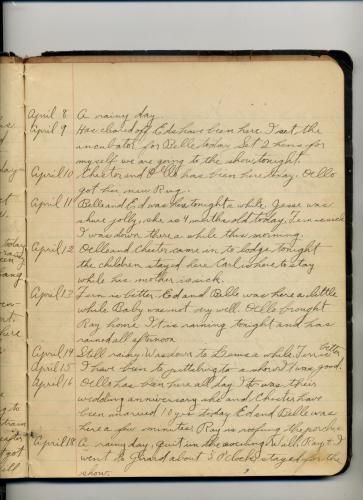 April 8 A rainy day.
April 9 Has cleared off Eds have been here I set the
incubator for Belle today Set 2 hens for
myself we are going to the show tonight.
April 10 Chester and Oella has been here today. Oella
got her new Rug.
April 11 Belle and Ed was here tonight a while. Jesse was
shure jolly, she is 4 months old today, Fern is sick
I was down there a while this morning.
April 12 Oella and Chester came in to lodge tonight
the children stayed here Carl is here to stay
while his mother is sick.
April 13 Fern is better. Ed and Belle was here a little
while Baby was not very well. Oella brought
Ray home It is raining tonight and has
rained all afternoon
April 14 Still rainy Was down to a while Fern is better
April 15 I have been to pittsburg to a show it was good.
April 16 Oella has been here all day It was their
wedding anniversary she and Chester have
been married 10 yrs today Ed and Belle was
here a few minutes Ray is roofing the porch
April 18 A rainy day, quit in the evening Will, Ray & I
went to Girard about 5 O'clock stayed for the
show.